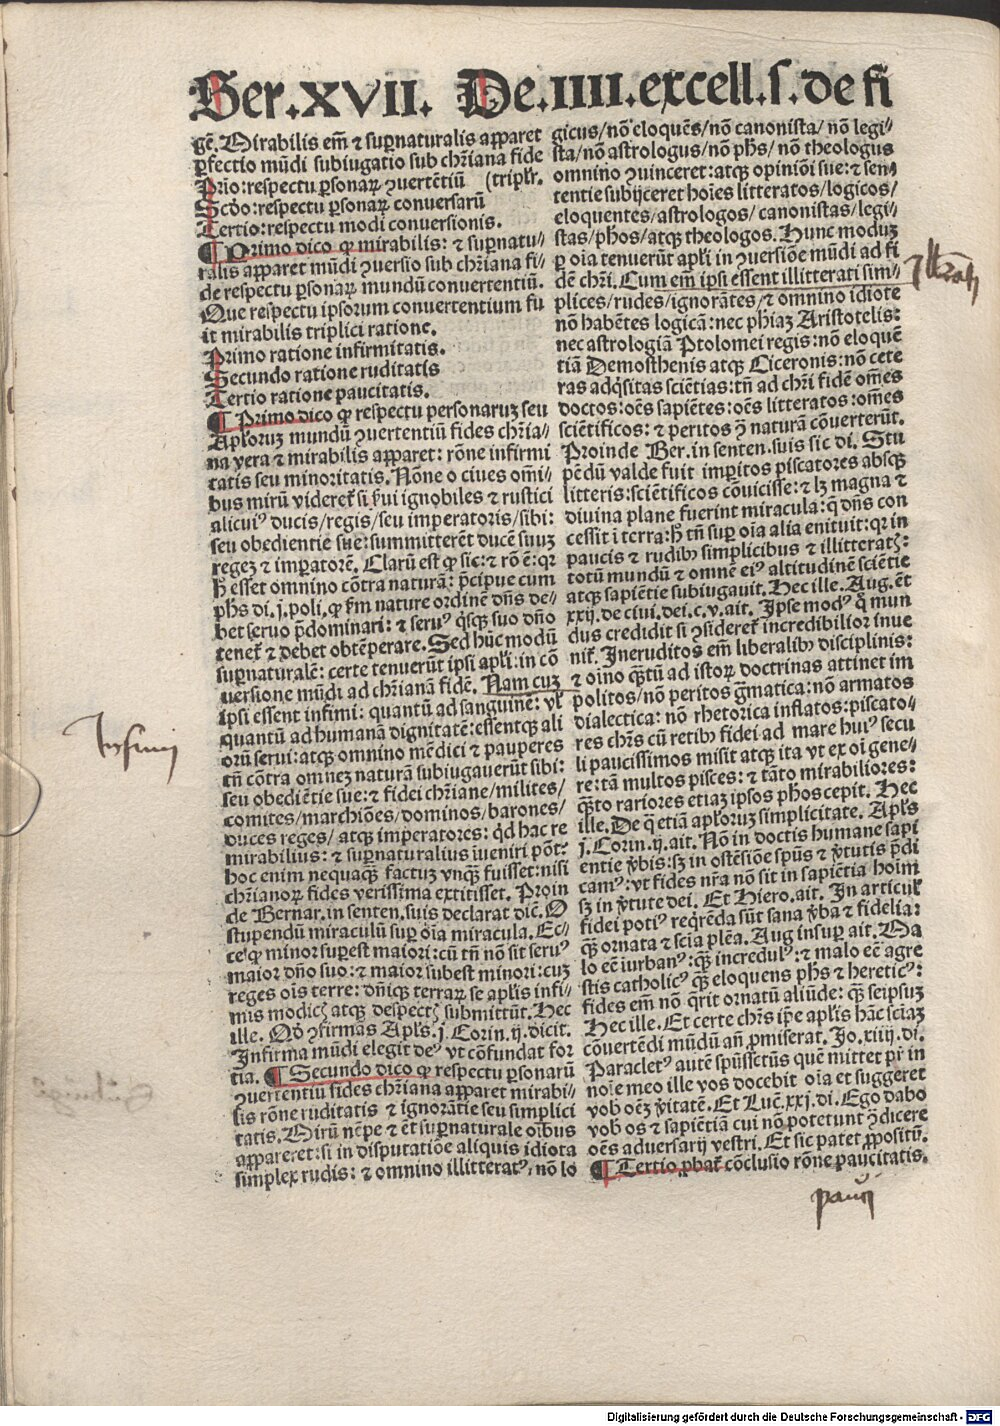 Ser.XVII. De.IIII.excell.s.de fi
gē. Mirabilis em̄ ⁊ suꝑnaturalis apparet
ꝑfectio mūdi subiugatio sub chr̄iana fide
Pr̄io: respectu ꝑsonaꝝ ꝯuertētiū (tripl'r.
Scd̄o: respectu ꝑsonaꝝ conuersarū
Tertio: respectu modi conuersionis.
¶ Primo dico ꝙ mirabilis: ⁊ suꝑnatu-
ralis apparet mūdi ꝯuersio sub chr̄iana fi-
de respectu ꝑsonaꝝ mundū conuertentiū.
Que respectu ipsorum conuertentium fu
it mirabilis triplici ratione.
Primo ratione infirmitatis.
Secundo ratione ruditatis
Tertio ratione paucitatis.
¶ Primo dico ꝙ respectu personaruꝫ seu
Apl'oruꝫ mundū ꝯuertentiū fides chr̄ia-
na vera ⁊ mirabilis apparet: rōne infirmi
tatis seu minoritatis. Nōne o ciues om̄i-
bus mirū videret̄ si ẜui ignobiles ⁊ rustici
alicuiꝰ ducis/regis/seu imperatoris/sibi:
seu obedientie sue: summitterēt ducē suuꝫ
regeꝫ ⁊ imꝑatorē. Clarū est ꝙ sic: ⁊ rō ē: qꝛ
h̄ esset omnino cōtra naturā: p̄cipue cum
ph̄s di. j. poli. ꝙ ẜm nature ordinē dn̄s de-
bet seruo p̄dominari: ⁊ seruꝰ qͥsqꝫ suo dn̄o
tenet̄ ⁊ debet obtēperare. Sed hūc modū
suꝑnaturalē: certe tenuerūt ipsi apl'i: in cō
uersione mūdi ad chr̄ianā fidē. Nam cuꝫ
ipsi essent infimi: quantū ad sanguinē: vl'
quantū ad humanā dignitatē: essentqꝫ ali
orū serui: atqꝫ omnino mēdici ⁊ pauperes
tn̄ cōtra omneꝫ naturā subiugauerūt sibi:
seu obediētie sue: ⁊ fidei chr̄iane/milites/
comites/marchiōes/dominos/barones/
duces reges/ atqꝫ imperatores: qͥd hac re
mirabilius: ⁊ suꝑnaturalius īueniri pōt:
hoc enim nequaqꝫ̄ factuꝫ vnqꝫ̄ fuisset: nisi
chr̄ianoꝝ fides verissima extitisset. Proin
de Bernar. in senten. suis declarat dicē. O
stupendū miraculū suꝑ oīa miracula. Ec-
ce qͥ minor suꝑest maiori: cū tn̄ nō sit seruꝰ
maior dn̄o suo: ⁊ maior subest minori: cuꝫ
reges oīs terre: dn̄iqꝫ terraꝝ se apl'is infi-
mis modicꝭ atqꝫ despectꝭ submittūt. Hec
ille. Qd̄ ꝯfirmās Apl's. j. Corin. ij. dicit.
Infirma mūdi elegit deꝰ vt cōfundat for
tia. ¶ Secundo dico ꝙ respectu ꝑsonarū
ꝯuertentiū fides chr̄iana apparet mirabi-
lis rōne ruditatis ⁊ ignorātie seu simplici
tatis. Mirū nēpe ⁊ ēt suꝑnaturale oībus
appareret: si in disputatiōe aliquis idiota
simplex rudis: ⁊ omnino illitteratꝰ, nō lo
gicus/nō eloquēs/nō canonista/ nō legi-
sta/nō astrologus/nō ph̄s/ nō theologus
omnino ꝯuinceret: atqꝫ opiniōi sue: ⁊ sen-
tentie subijceret hoīes litteratos/logicos/
eloquentes/astrologos/ canonistas/legi-
stas/ph̄os/atqꝫ theologos. Hunc moduꝫ
ꝑ oīa tenuerūt apl'i in ꝯuersiōe mūdi ad fi
dē chr̄i. Cum em̄ ipsi essent illitterati sim-
plices/rudes/ignorātes/⁊ omnino idiote
nō habētes logicā: nec ph̄iaꝫ Aristotelis:
nec astrologiā Ptolomei regis: nō eloquē
tiā Demosthenis atqꝫ Ciceronis: nō cete
ras adqͥsitas sciētias: tn̄ ad chr̄i fidē om̄es
doctos: oēs sapiētes: oēs litteratos: om̄es
sciētificos: ⁊ peritos ꝯ̄ naturā cōuerterūt.
Proinde Ber. in senten. suis sic di. Stu
pēdū valde fuit imꝑitos piscatores absqꝫ
litteris: sciētificos cōuicisse: ⁊ lꝫ magna ⁊
diuina plane fuerint miracula: q̄ dn̄s con
cessit ī terra: h̄ tn̄ suꝑ oīa alia enituit: qꝛ in
paucis ⁊ rudibꝫ simplicibus ⁊ illitteratꝭ:
totū mundū ⁊ omnē eiꝰ altitudinē sciētie
atqꝫ sapiētie subiugauit. Hec ille. Aug. ēt
xxij. de ciui. dei. c. v. ait. Ipse modꝰ q̄ mun
dus credidit si ꝯsideret̄ incredibilior inue
nit̄. Ineruditos em̄ liberalibꝫ disciplinis:
⁊ oīno qͣtū ad istoꝝ doctrinas attinet im
politos/nō peritos gͣmatica: nō armatos
dialectica: nō rhetorica inflatos: piscato-
res chr̄s cū retibꝫ fidei ad mare huiꝰ secu
li paucissimos misit atqꝫ ita vt ex oī gene-
re: tā multos pisces: ⁊ tāto mirabiliores:
qͣto rariores etiaꝫ ipsos ph̄os cepit. Hec
ille. De q̄ etiā apl'oruꝫ simplicitate. Apl's
j. Corin. ij. ait. Nō in doctis humane sapi
entie v̓bis: sꝫ in ostēsiōe spūs ⁊ v̓tutis p̄di
camꝰ: vt fides nr̄a nō sit in sapiētia hoīm
sꝫ in v̓tute dei. Et Hiero. ait. In articul'
fidei potiꝰ reqͥrēda sūt sana v̓ba ⁊ fidelia:
qꝫ̄ ornata ⁊ scīa plēa. Aug insuꝑ ait. Ma
lo eē iurbanꝰ: qꝫ̄ incredulꝰ: ⁊ malo eē agre
stis catholicꝰ qꝫ̄ eloquens ph̄s ⁊ hereticꝰ:
fides em̄ nō qͥrit ornatū aliūde: qꝫ̄ seipsuꝫ
Hec ille. Et certe chr̄s ip̄e apl'is hāc sciaꝫ
cōuertēdi mūdū an̄ ꝓmiserat. Jo. xiiij. di.
Paracletꝰ autē spūssctūs quē mittet pr̄ in
noīe meo ille vos docebit oīa et suggeret
vob̄ oēꝫ v̓itatē. Et Luc̄. xxj. di. Ego dabo
vob̄ os ⁊ sapiētiā cui nō potetunt ꝯ̄dicere
oēs aduersarij vestri. Et sic patet ꝓpositū.
¶ Tertio ꝓbat̄ cōclusio rōne paucitatis.
Infimi
pauci
Digitalisierung gefördert durch die Deutsche Forschungsgemeinschaft - DFG